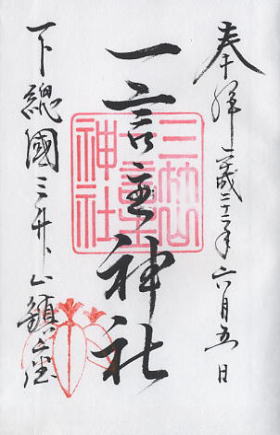 奉拝 平成年六月五日
一言主神社
下総國三竹山鎮座
三竹山
一言主
神社